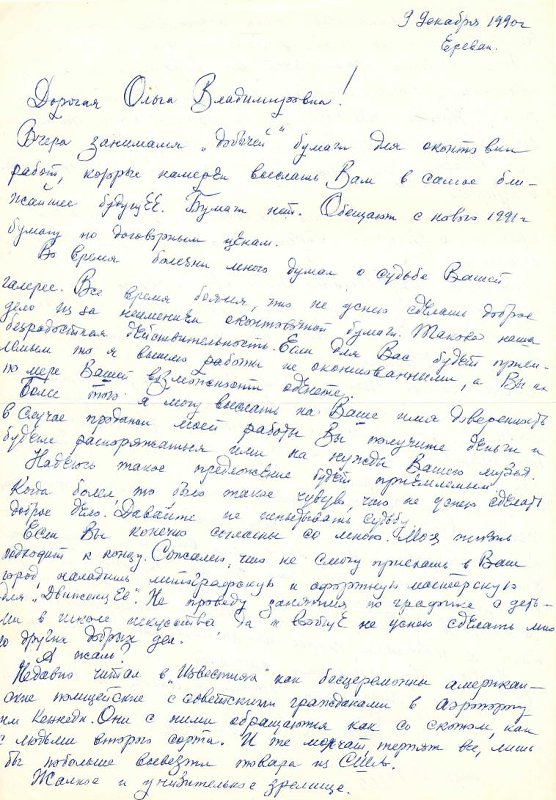 9 декабря 1990г
Ереван.
Дорогая Ольга Владимировна!
Вчера занимался „добычей" бумаги для окантовки
работ, которые намерен выслать Вам в самое бли-
жайшее будущее. Бумаги нет. Обещают с нового 1991г
бумагу по договорным ценам.
Во время болезни много думал о судьбе Вашей
галереи. Все время боялся, что не успею сделать доброе
дело из за неимением окантовочной бумаги. Такова наша
безрадостная действительность. Если для Вас будет прием-
лемым то я вышлю работы не окантованными, а Вы их
по мере Вашей возможности оденете.
Более того я могу выслать на Ваше имя доверенность
в случае продажи моей работы Вы получите деньги и
будете распоряжаться ими на нужды Вашего музея.
Надеюсь такое предложение будет приемлемым
Когда болел, то было такое чувство, что не успею сделать
доброе дело. Давайте не испытывать судьбу.
Если Вы конечно согласны со мною. Моя жизнь
подходит к концу. Сожалею, что не смогу приехать в Ваш
город наладить литографскую и офортную мастерскую
для „Двинсонцев". Не проведу занятия по графике с деть-
ми в школе искусства да и вообще не успею сделать мно
го других добрых дел.
А жаль!
Недавно читал в „Известиях" как бесцеремонны американ-
ские полицейские с советскими гражданами в аэропорту
им Кеннеди. Они с ними обращаются как со скотом, как
с людьми второго сорта. И те молчат, терпят все, лишь
бы побольше вывезти товара из США.
Жалкое и унизительное зрелище.